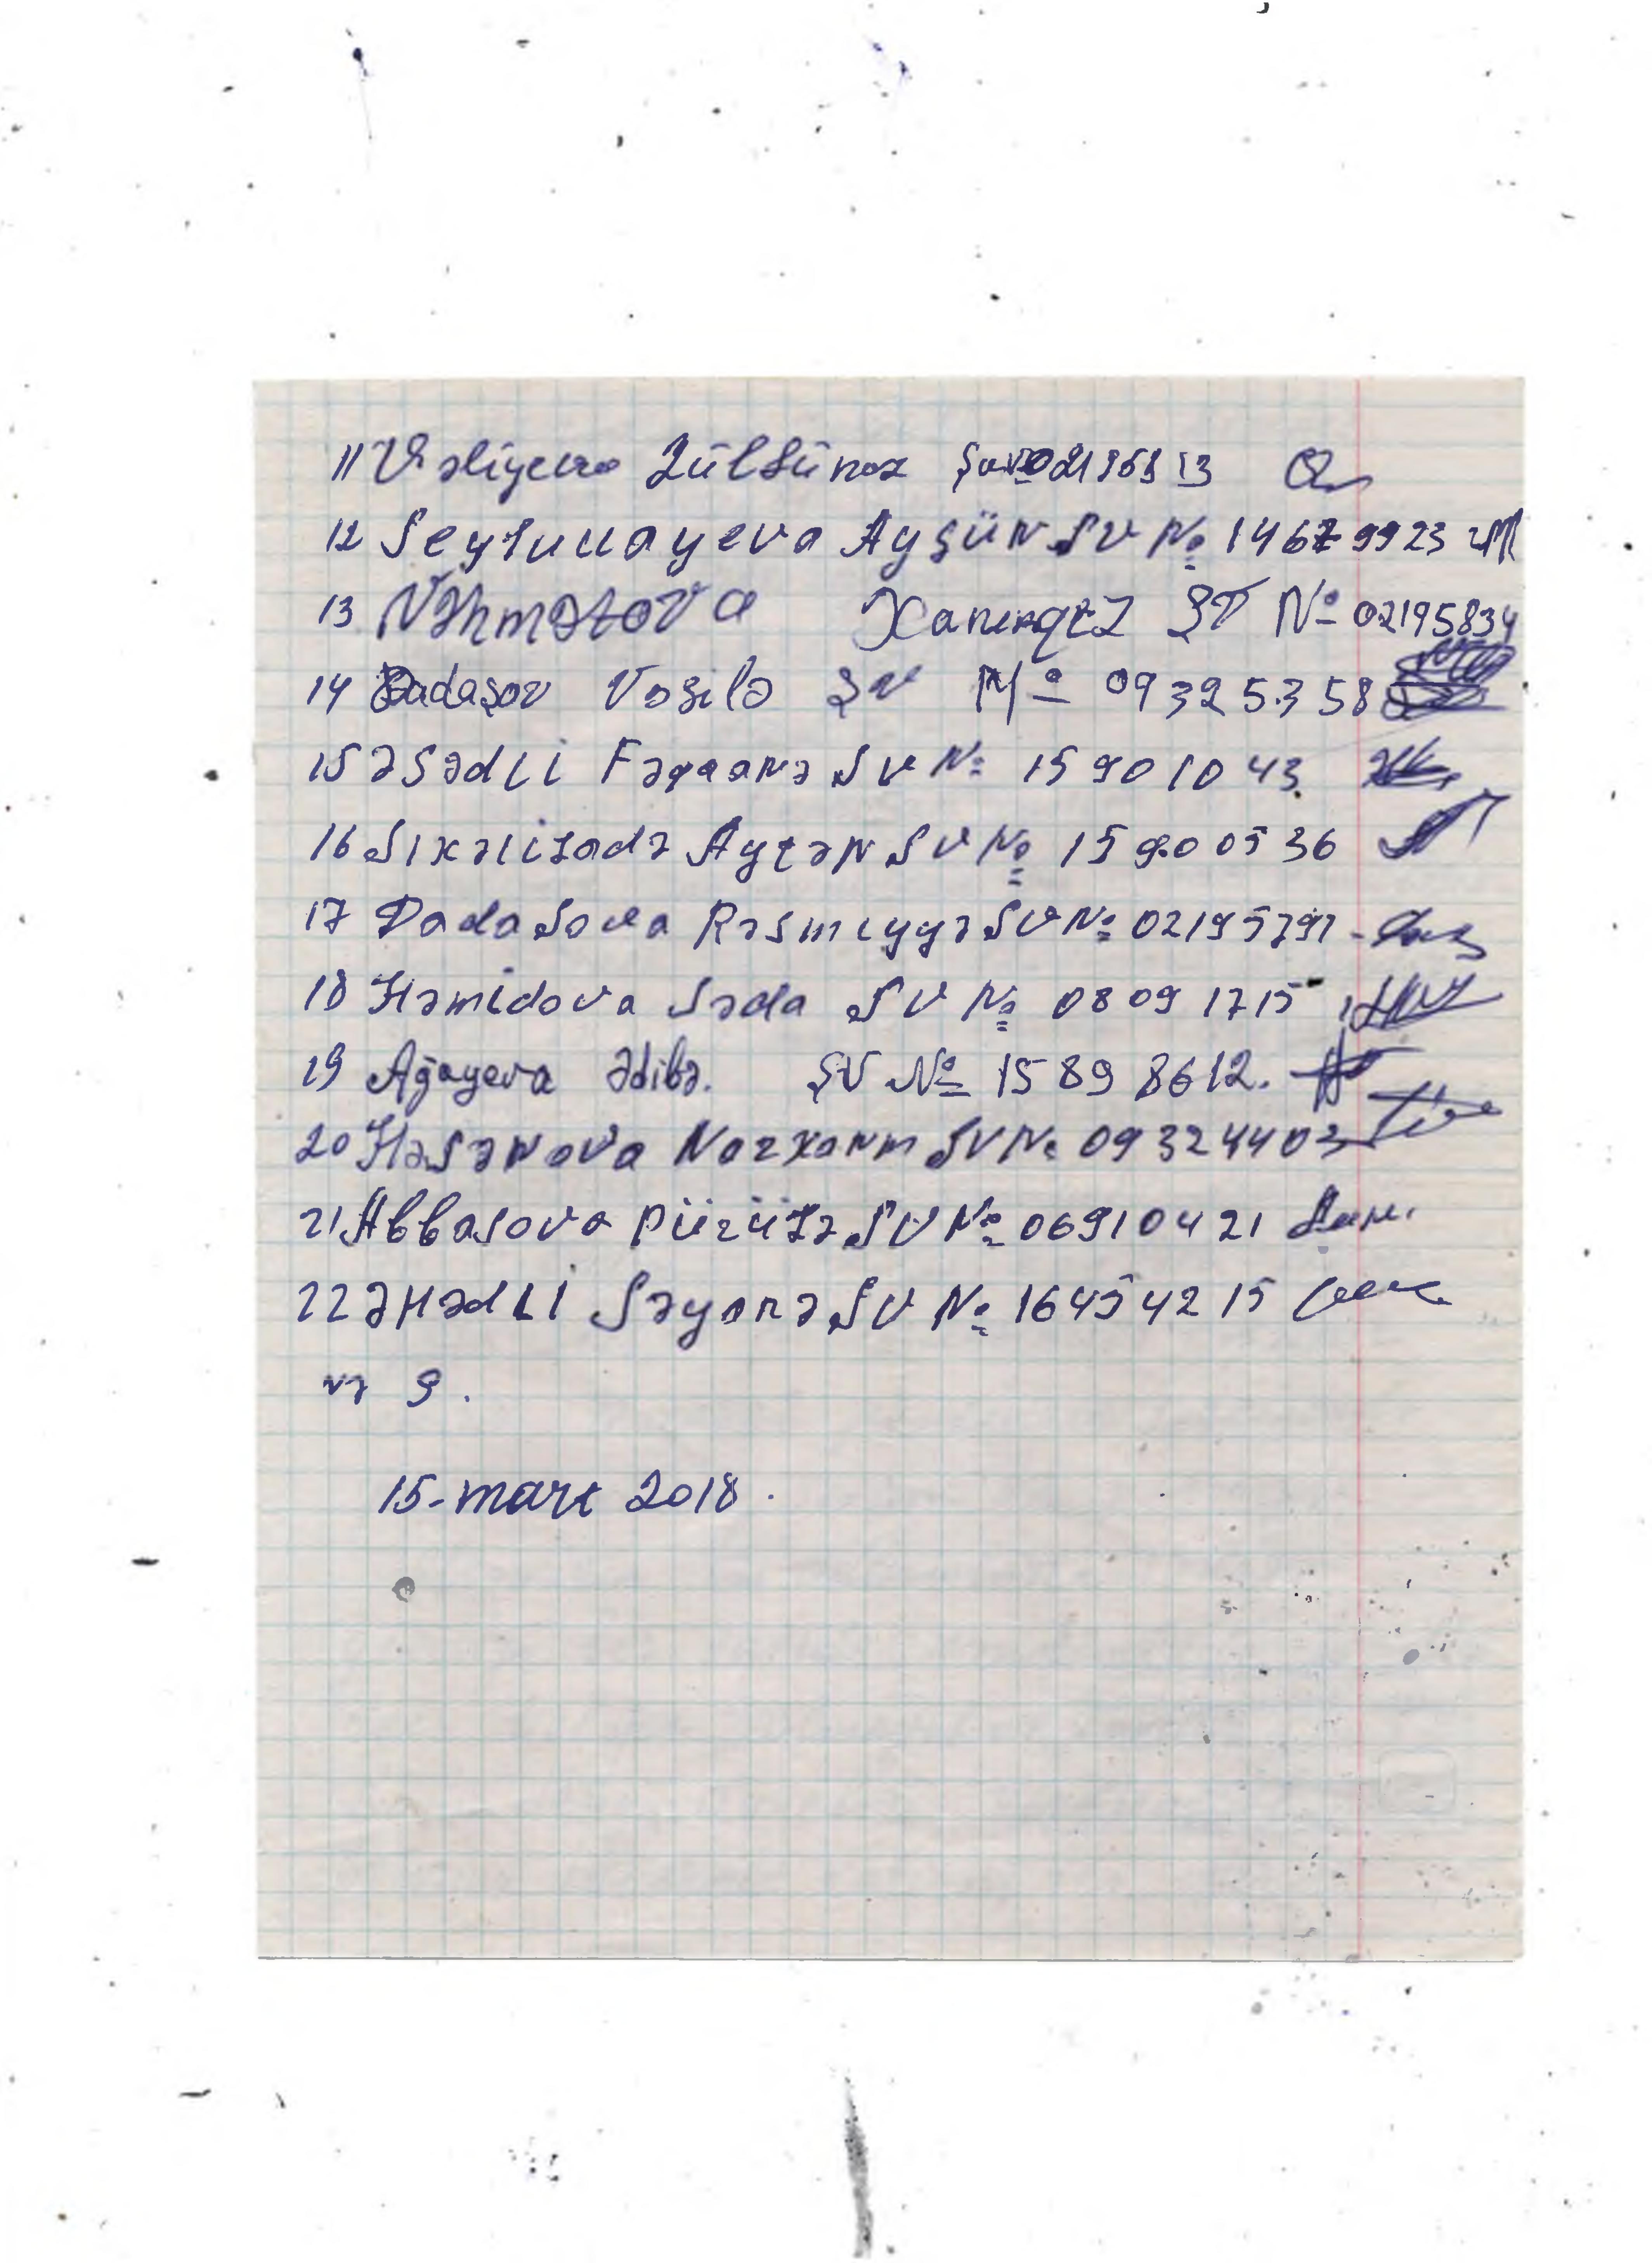 11 Vəliyeva Gülsünaz
12 Seyfullayeva Aygün ŞV № 14679923
13 Nəhmətova Xanımqız ŞV № 02195834
14 Dadaşov Vəsilə ŞV № 09325358
15 Əsədli Fəqanə ŞV № 15901043
16 Şıxəlizadə Aytən ŞV № 15900536
17 Dadaşova Rəsmiyyə ŞV № 02195791
18 Həmidova Səda ŞV № 08091715
19 Ağayeva Ədibə. ŞV № 15898612.
20 Həsənova Nazxanım ŞV № 09324403
21 Abbasova ŞV № 06910421
22 Əhədli Səyanə ŞV № 16454215
və s.
15-mart 2018.